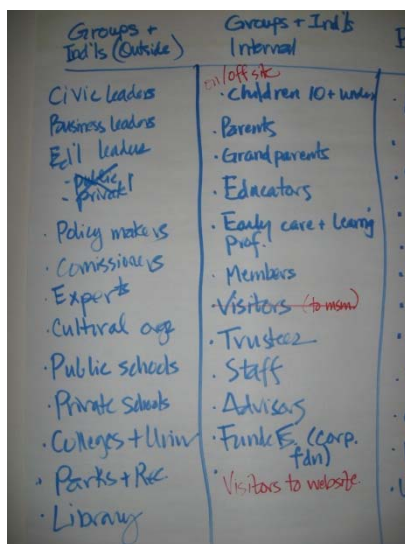 Groups +
Ind'ls (Outside)
Civic leaders
Business leaders
Ed'l leaders
- public
- private
· Policy makers
· Comissioners
· Experts
· Cultural orgs
· Public schools
· Private Schools
· Colleges + Univ
· Parks + Rec
· Library
Groups + Ind'ls
Internal
on/off site
· Children 10 + under
· Parents
· Grandparents
· Educators
· Early care + Learng
prof.
· Members
· Visitors (to msm)
· Trustees
· Staff
· Advisors
· Funders (corp.
fdn)
Visitors to website